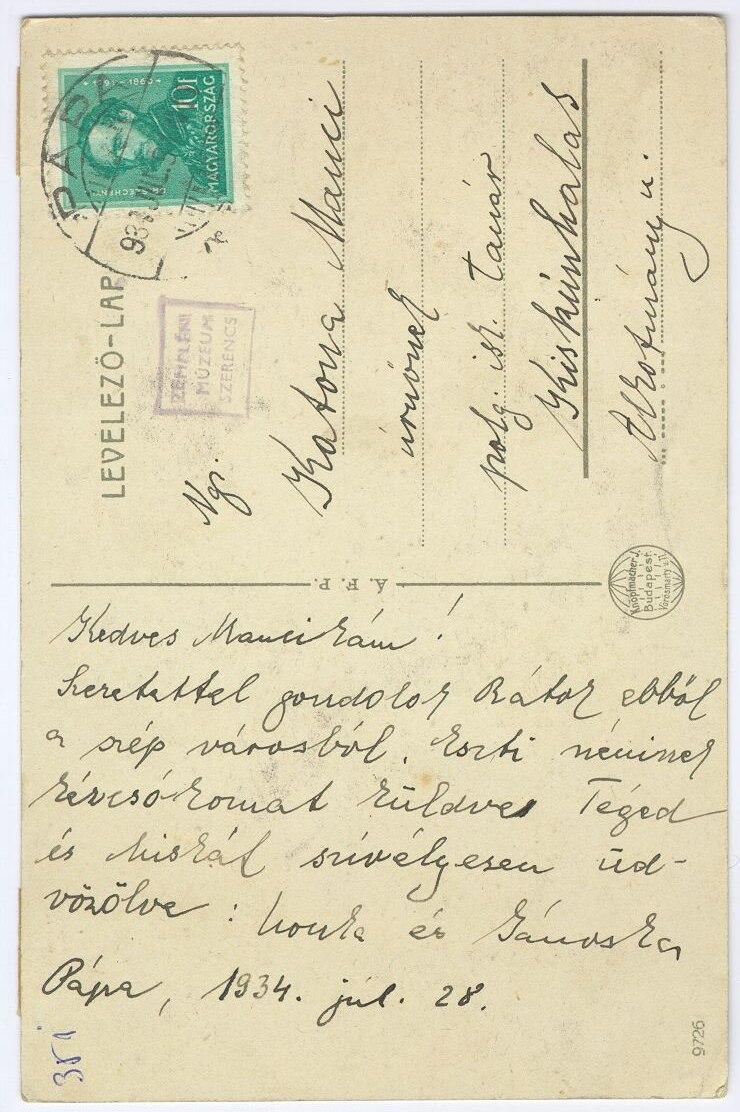 LEVELEZŐ-LAP
10f
MAGYARORSZÁG
PÁPA
ZEMPLÉNI
MÚZEUM
SZERENCS
Ngs.
Katona Manci
úrnőnek
polg. isk. tanár
Kiskúnhalas
Alkotmány u.
Á. F. P.
Knopfmacher J.
Budapest
Vörösmarty u. 11
Kedves Mancikám!
Szeretettel gondolok Rátok ebből
a szép városból. Eszti néninek
kézcsókomat küldve Téged
és Miskát szívélyesen üd-
vözölve: Ilonka és Jánoska
Pápa, 1934. júl. 28.
351
9726